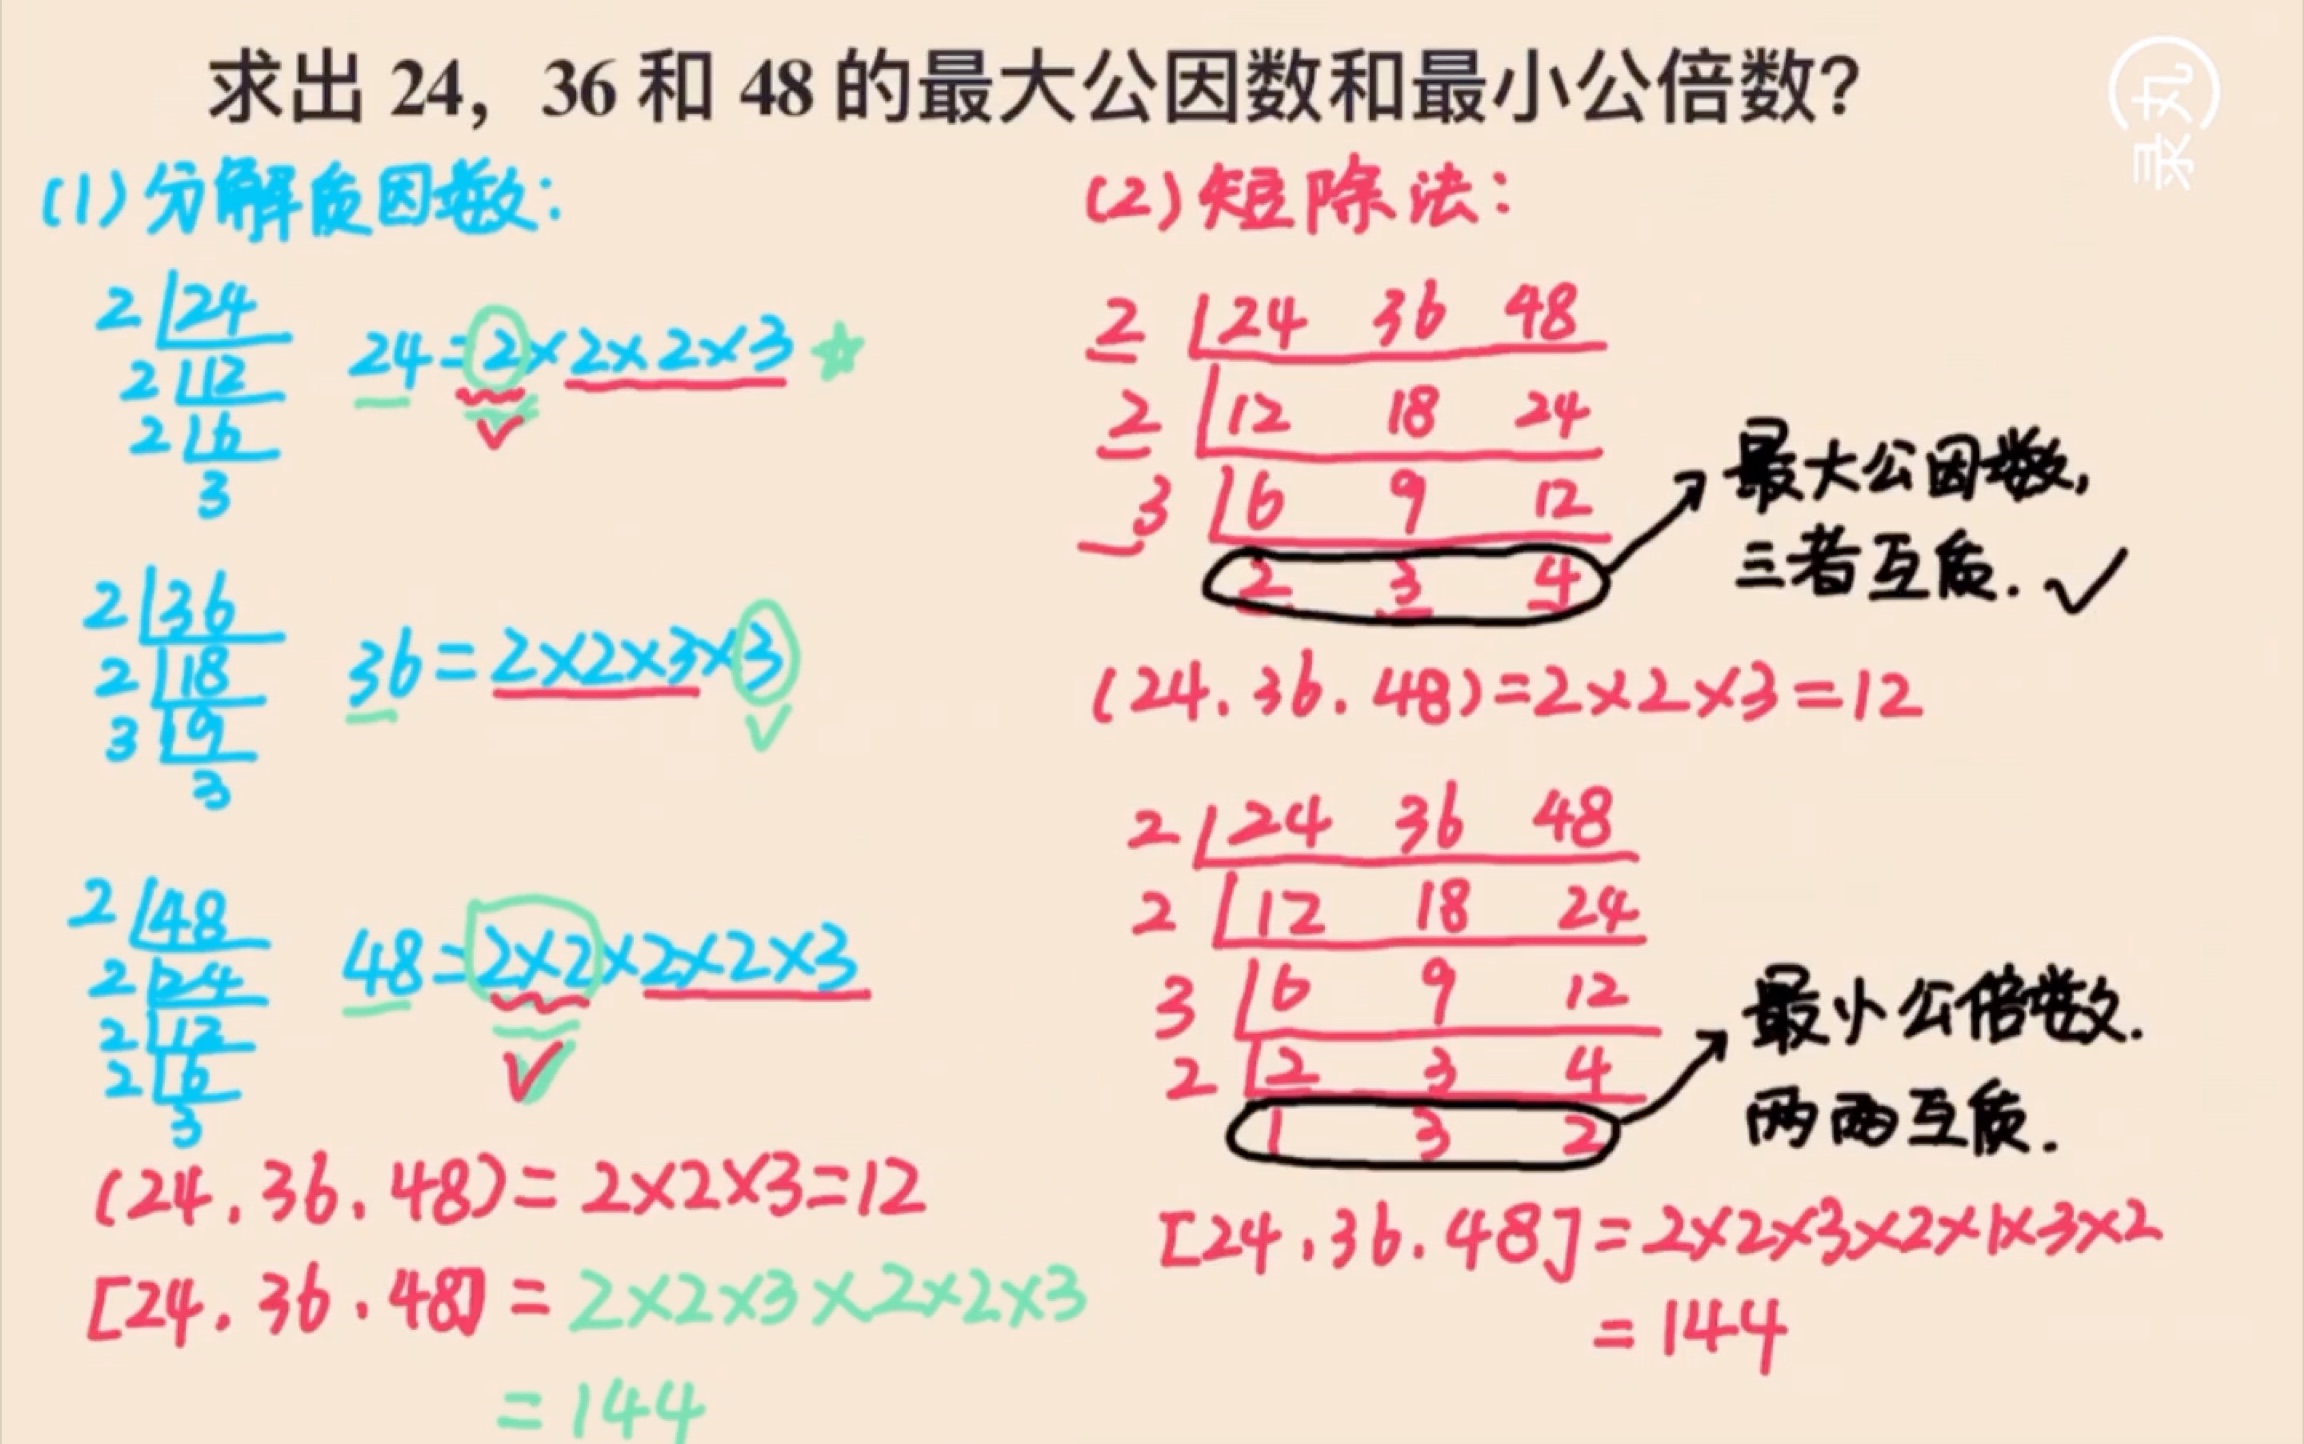 求出 24，36 和 48 的最大公因数和最小公倍数？
录丸
(1)分解质因数：
2 24
2 12
2 6
3
24=2×2×2×3
2 36
2 18
3 9
3
36=2×2×3×3
2 48
2 24
2 12
2 6
3
48=2×2×2×2×3
(24.36.48)=2×2×3=12
[24.36.48]=2×2×3×2×2×3
=144
(2)短除法：
2 24 36 48
2 12 18 24
3 6 9 12
2 3 4
最大公因数，
三者互质.
(24.36.48)=2×2×3=12
2 24 36 48
2 12 18 24
3 6 9 12
2 2 3 4
1 3 2
最小公倍数.
两两互质.
[24.36.48]=2×2×3×2×1×3×2
=144